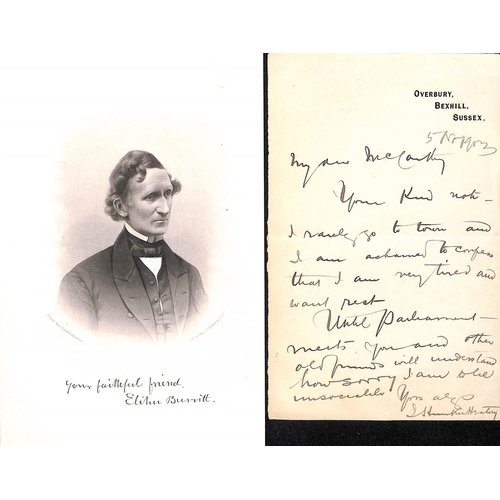 Your faithful friend,
Elihu Burritt.
OVERBURY,
BEXHILL,
SUSSEX.
5 Nov
My dear McCarthy
Your kind note –
I rarely go to town and
I am ashamed to confess
that I am very tired and
want rest
Until Parliament
meets you and other
old friends will understand
how sorry I am to be
unsociable Yrs alys